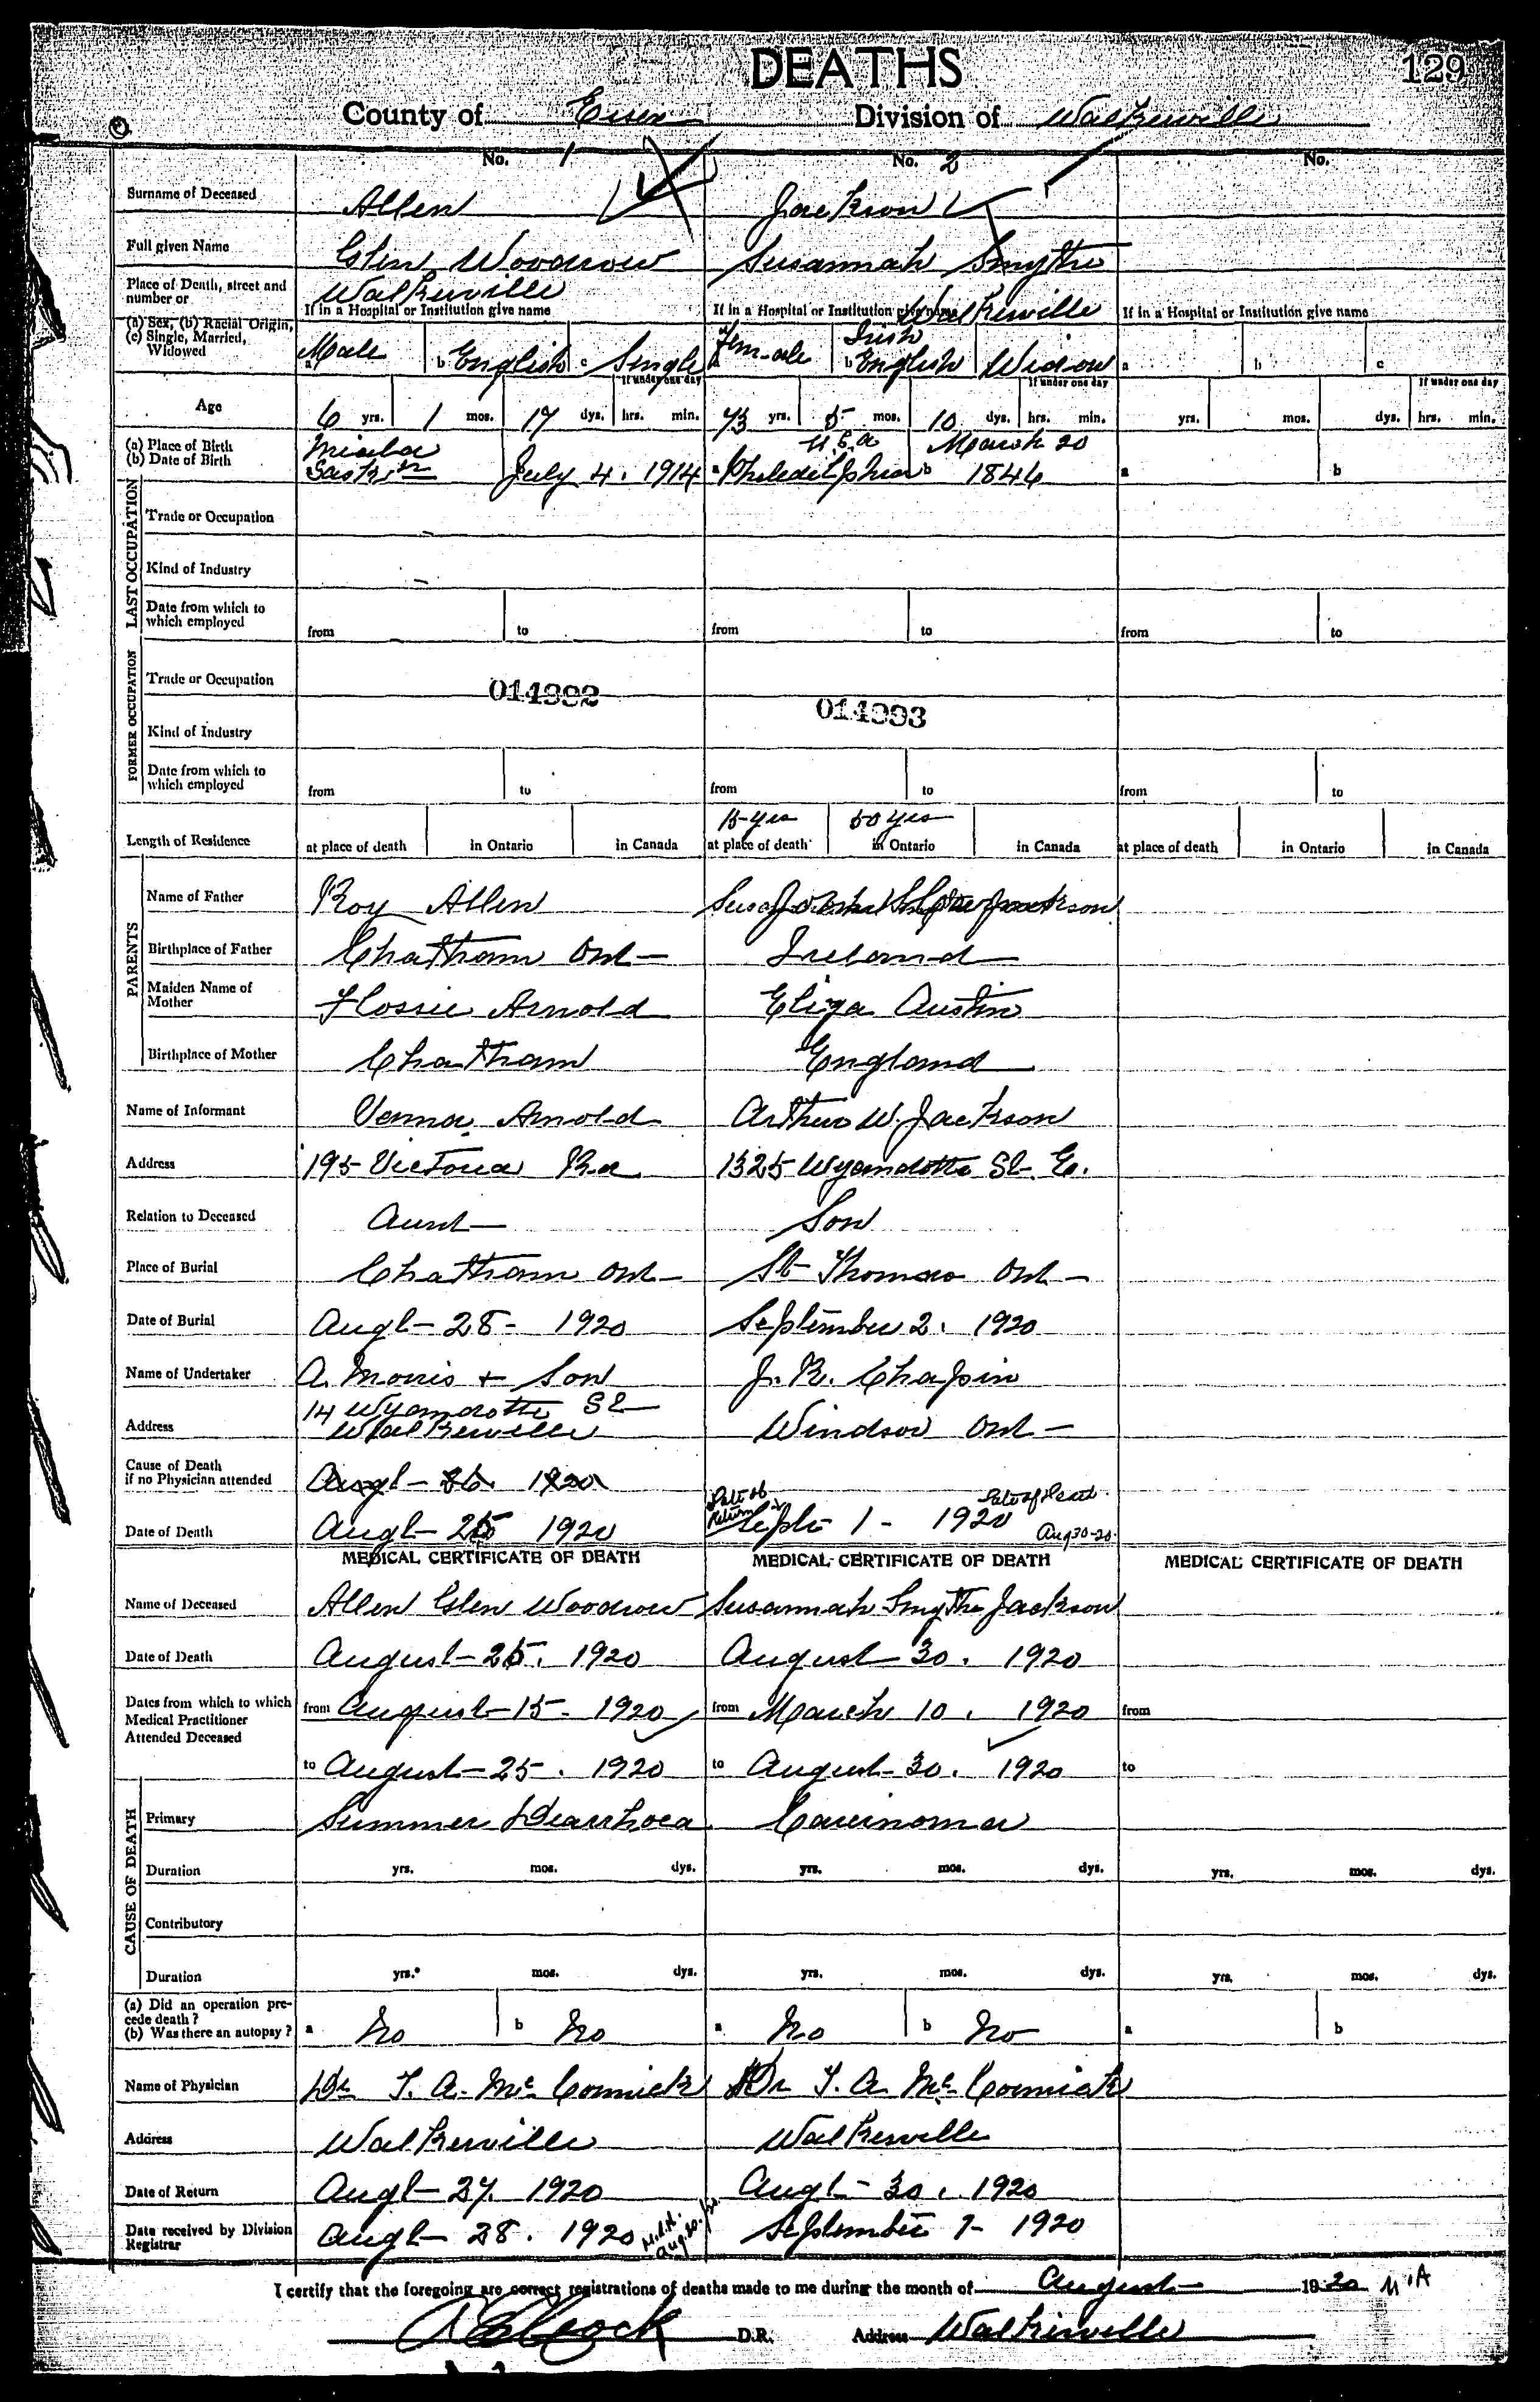 DEATHS
129
County of Essex Division of Walkerville
No. 1 No. 2 No.
Surname of Deceased Allen Jackson
Full given Name Glen Woodrow Susannah Smythe
Place of Death, street and number or Walkerville Walkerville
If in a Hospital or Institution give name If in a Hospital or Institution give name If in a Hospital or Institution give name
(a) Sex, (b) Racial Origin, (c) Single, Married, Widowed
a Male b English c Single a Female b Irish English Widow a b c
If under one day If under one day If under one day
Age 6 yrs. 1 mos. 17 dys. hrs. min. 73 yrs. 5 mos. 10 dys. hrs. min. yrs. mos. dys. hrs. min.
(a) Place of Birth
(b) Date of Birth
Saskn July 4. 1914 a U.S.A b March 20 1846 a b
LAST OCCUPATION
Trade or Occupation
Kind of Industry
Date from which to which employed from to from to from to
FORMER OCCUPATION
Trade or Occupation 014992 014993
Kind of Industry
Date from which to which employed from to from to from to
15 yrs 50 yrs
Length of Residence at place of death in Ontario in Canada at place of death in Ontario in Canada at place of death in Ontario in Canada
PARENTS
Name of Father Roy Allen
Birthplace of Father Chatham Ont Ireland
Maiden Name of Mother Flossie Arnold Eliza Austin
Birthplace of Mother Chatham England
Name of Informant Verna Arnold Arthur W. Jackson
Address 195 Victoria Rd 1325 Wyandotte St. E.
Relation to Deceased Aunt Son
Place of Burial Chatham Ont St Thomas Ont
Date of Burial Augt 28 - 1920 September 2. 1920
Name of Undertaker A. Morris + Son J. R. Chapin
Address 14 Wyandotte St Walkerville Windsor Ont
Cause of Death if no Physician attended Augt - 26. 1920
Date of Death Augt - 25 1920 Date of Return Septr 1 - 1920 Date of Death Aug 30-20
MEDICAL CERTIFICATE OF DEATH MEDICAL CERTIFICATE OF DEATH MEDICAL CERTIFICATE OF DEATH
Name of Deceased Allen Glen Woodrow Susannah Smythe Jackson
Date of Death August 25. 1920 August 30. 1920
Dates from which to which Medical Practitioner Attended Deceased
from August 15 - 1920 from March 10. 1920 from
to August 25. 1920 to August 30. 1920 to
CAUSE OF DEATH
Primary Summer Diarrhoea Carcinoma
Duration yrs. mos. dys. yrs. mos. dys. yrs. mos. dys.
Contributory
Duration yrs. mos. dys. yrs. mos. dys. yrs. mos. dys.
(a) Did an operation precede death?
(b) Was there an autopsy? a No b No a No b No a b
Name of Physician Dr T. A. McCormick Dr T. A. McCormick
Address Walkerville Walkerville
Date of Return Augt - 27. 1920 Augt - 30. 1920
Date received by Division Registrar Augt - 28. 1920 September 1 - 1920
I certify that the foregoing are correct registrations of deaths made to me during the month of August 1920
D.R. Address Walkerville